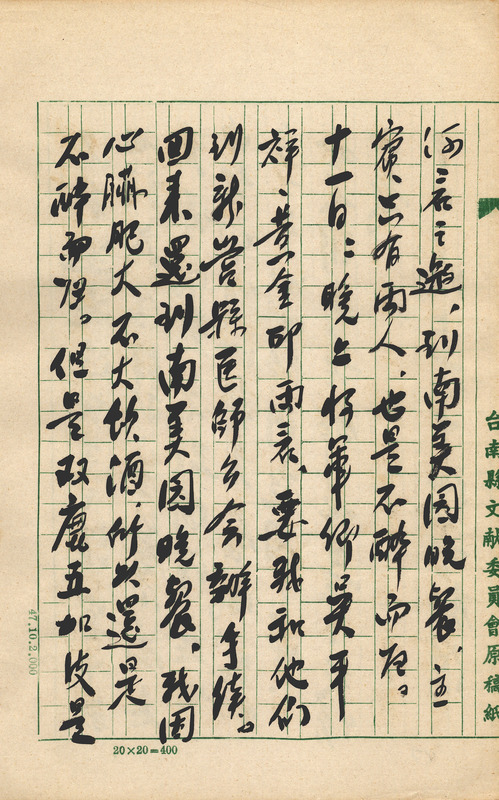 沔君之邀、到南美園晚餐、主
賓只有兩人、也是不醉而歸。
十一日:晚上將軍鄉吳平
祥、黃金印兩君、要我和他們
到新營縣巨師公會辦手續。
回來還到南美園晚餐、我因
心臟肥大不大飲酒、所以還是
不醉而歸。但是双鹿五加皮是
台南縣文献委員會原稿紙
47.10.2.000
20×20=400